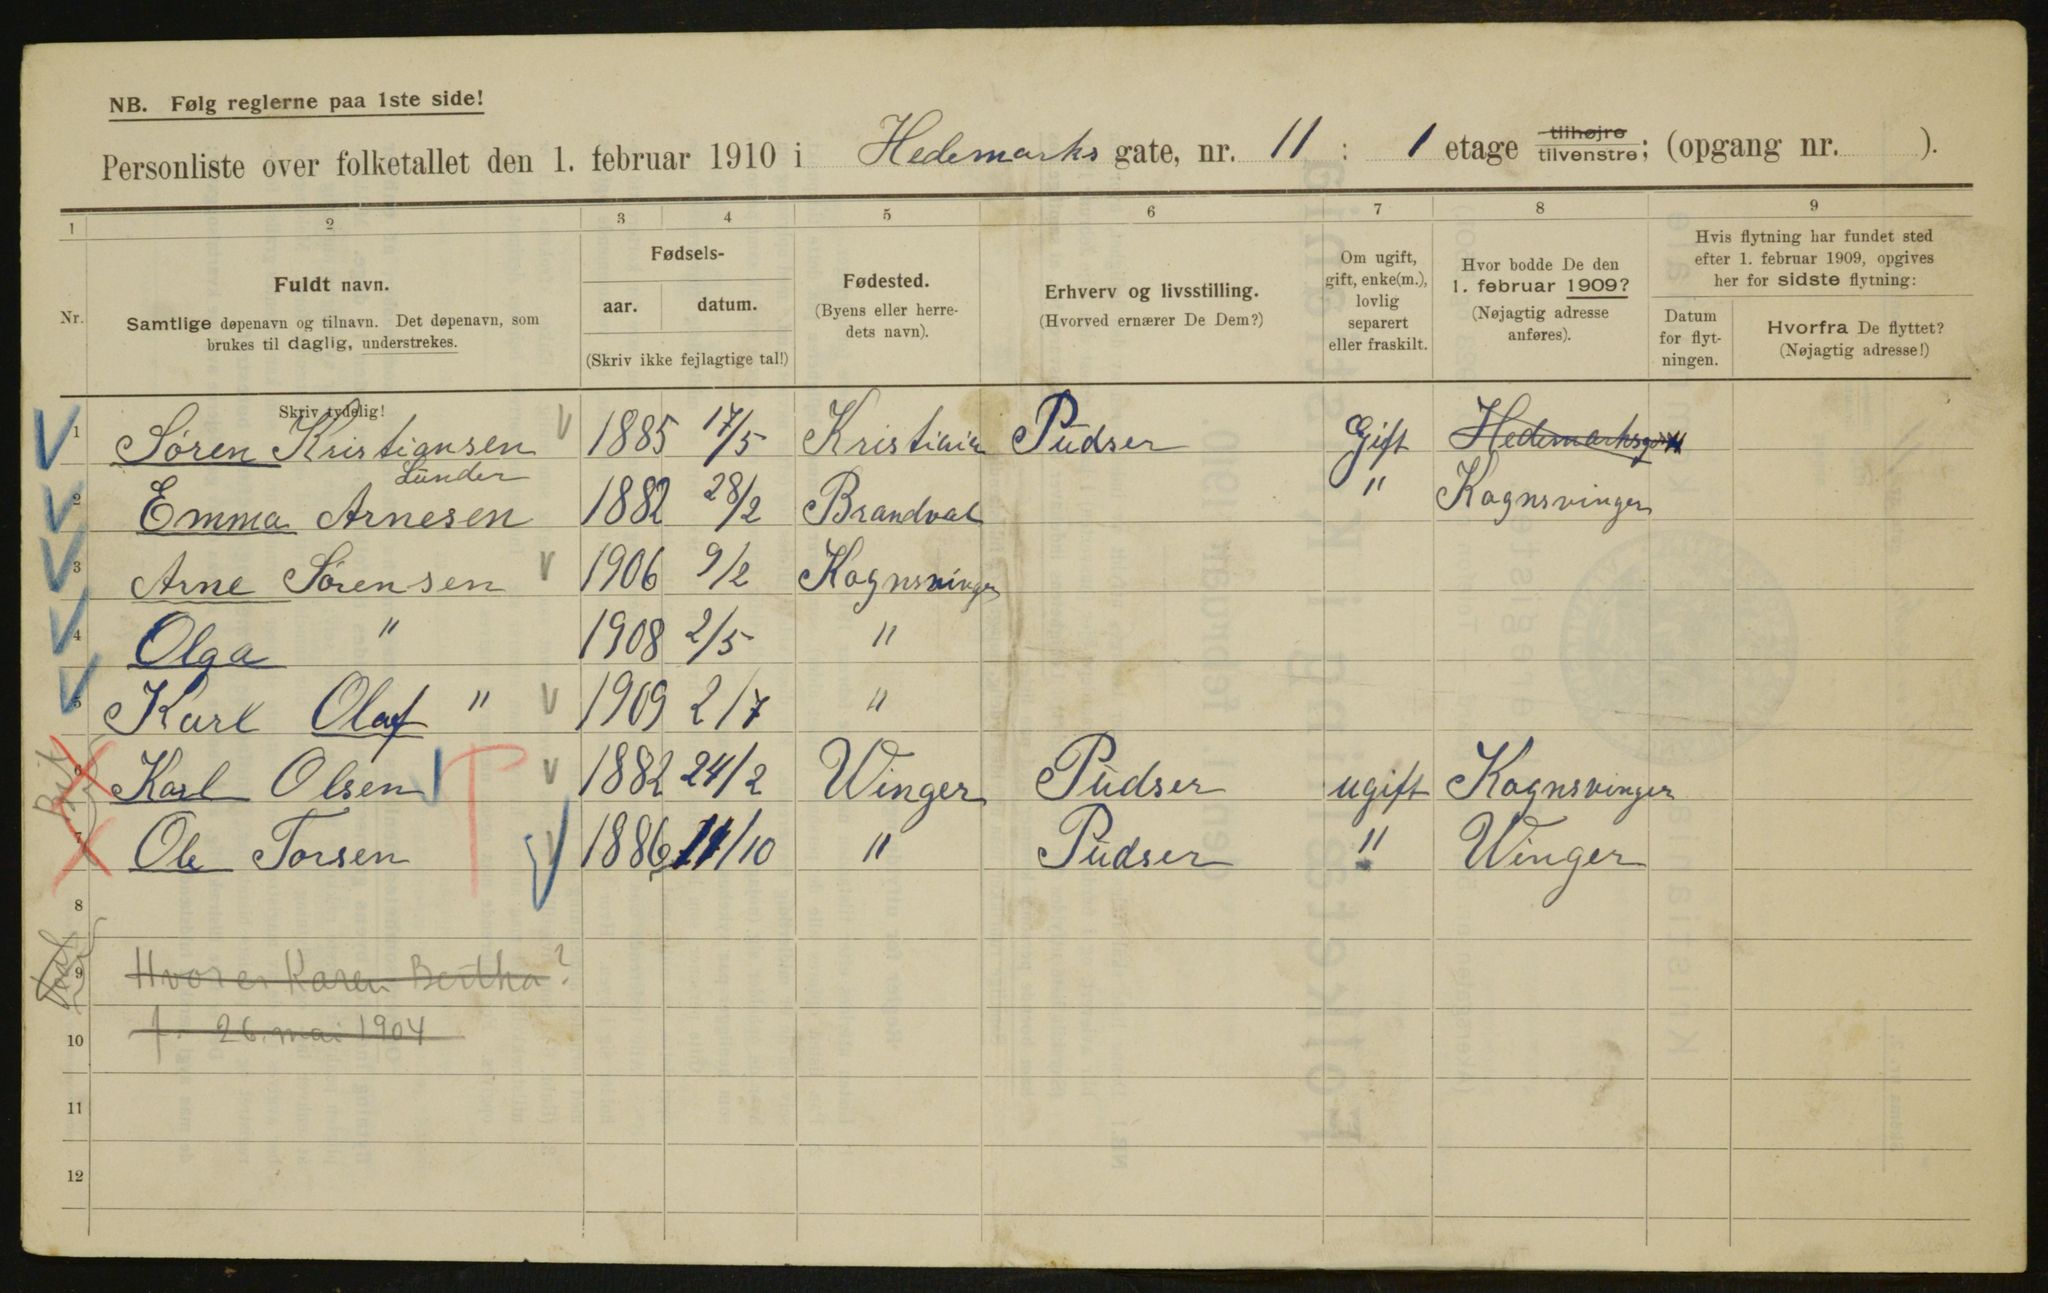 NB. Følg reglerne paa 1ste side!
Personliste over folketallet den 1. februar 1910 i Hedemarks gate, nr. 11 : 1 etage tilhøjre tilvenstre; (opgang nr. ).
1 2 3 4 5 6 7 8 9
Nr.
Fuldt navn.
Samtlige døpenavn og tilnavn. Det døpenavn, som
brukes til daglig, understrekes.
Skriv tydelig!
Fødsels-
aar. datum.
(Skriv ikke fejlagtige tal!)
Fødested.
(Byens eller herre-
dets navn).
Erhverv og livsstilling.
(Hvorved ernærer De Dem?)
Om ugift,
gift, enke(m.),
lovlig
separert
eller fraskilt.
Hvor bodde De den
1. februar 1909?
(Nøjagtig adresse
anføres).
Hvis flytning har fundet sted
efter 1. februar 1909, opgives
her for sidste flytning:
Datum
for flyt-
ningen.
Hvorfra De flyttet?
(Nøjagtig adresse!)
1 Søren Kristiansen 1885 17/5 Kristiania Pudser Gift
Lunder
2 Emma Arnesen 1882 28/2 Brandval " Kognsvinger
3 Arne Sørensen 1906 9/2 Kognsvinger
4 Olga " 1908 2/5 "
5 Karl Olaf " 1909 2/7 "
6 Karl Olsen 1882 24/2 Winger Pudser ugift Kognsvinger
7 Ole Torsen 1886 11/10 " Pudser " Winger
8
9 Hvor er Karen Bertha?
10 f. 26 mai 1904
11
12